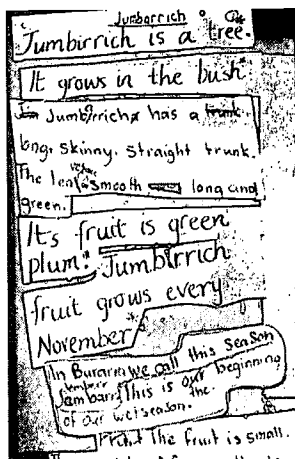 Jumbarrich
Jumbirrich is a tree.
It grows in the bush
Jumbirrich has a trunk.
long. skinny. Straight trunk.
The leaf smooth long and
green.
It's fruit is green
plum. Jumbirrich
fruit grows every
November
In Burarra we call this season
Jambarr This is our beginning
of our wet season. the
The fruit is small.